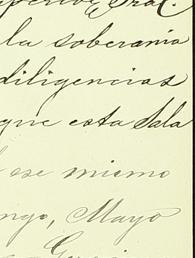 Superior Gral.
la soberania
diligencias
que esta Sala
ese mismo
ango, Mayo